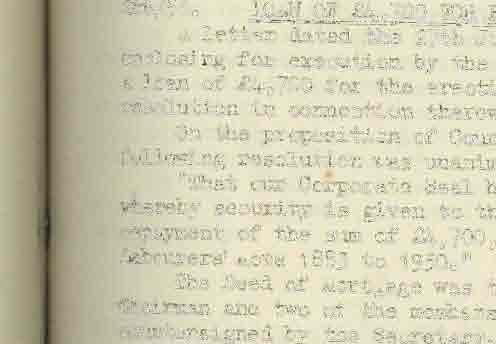 LOAN OF £4,700 FOR
A letter dated the
enclosing for execution by the
a loan of £4,700 for the erecti
resolution in connection therew
On the proposition of Coun
following resolution was unanim
"That our Corporate Seal b
whereby security is given to th
repayment of the sum of £4,700,
Labourers' Acts 1883 to 1950."
The Deed of Mortgage was t
Chairman and two of the members
countersigned by the Secretary.